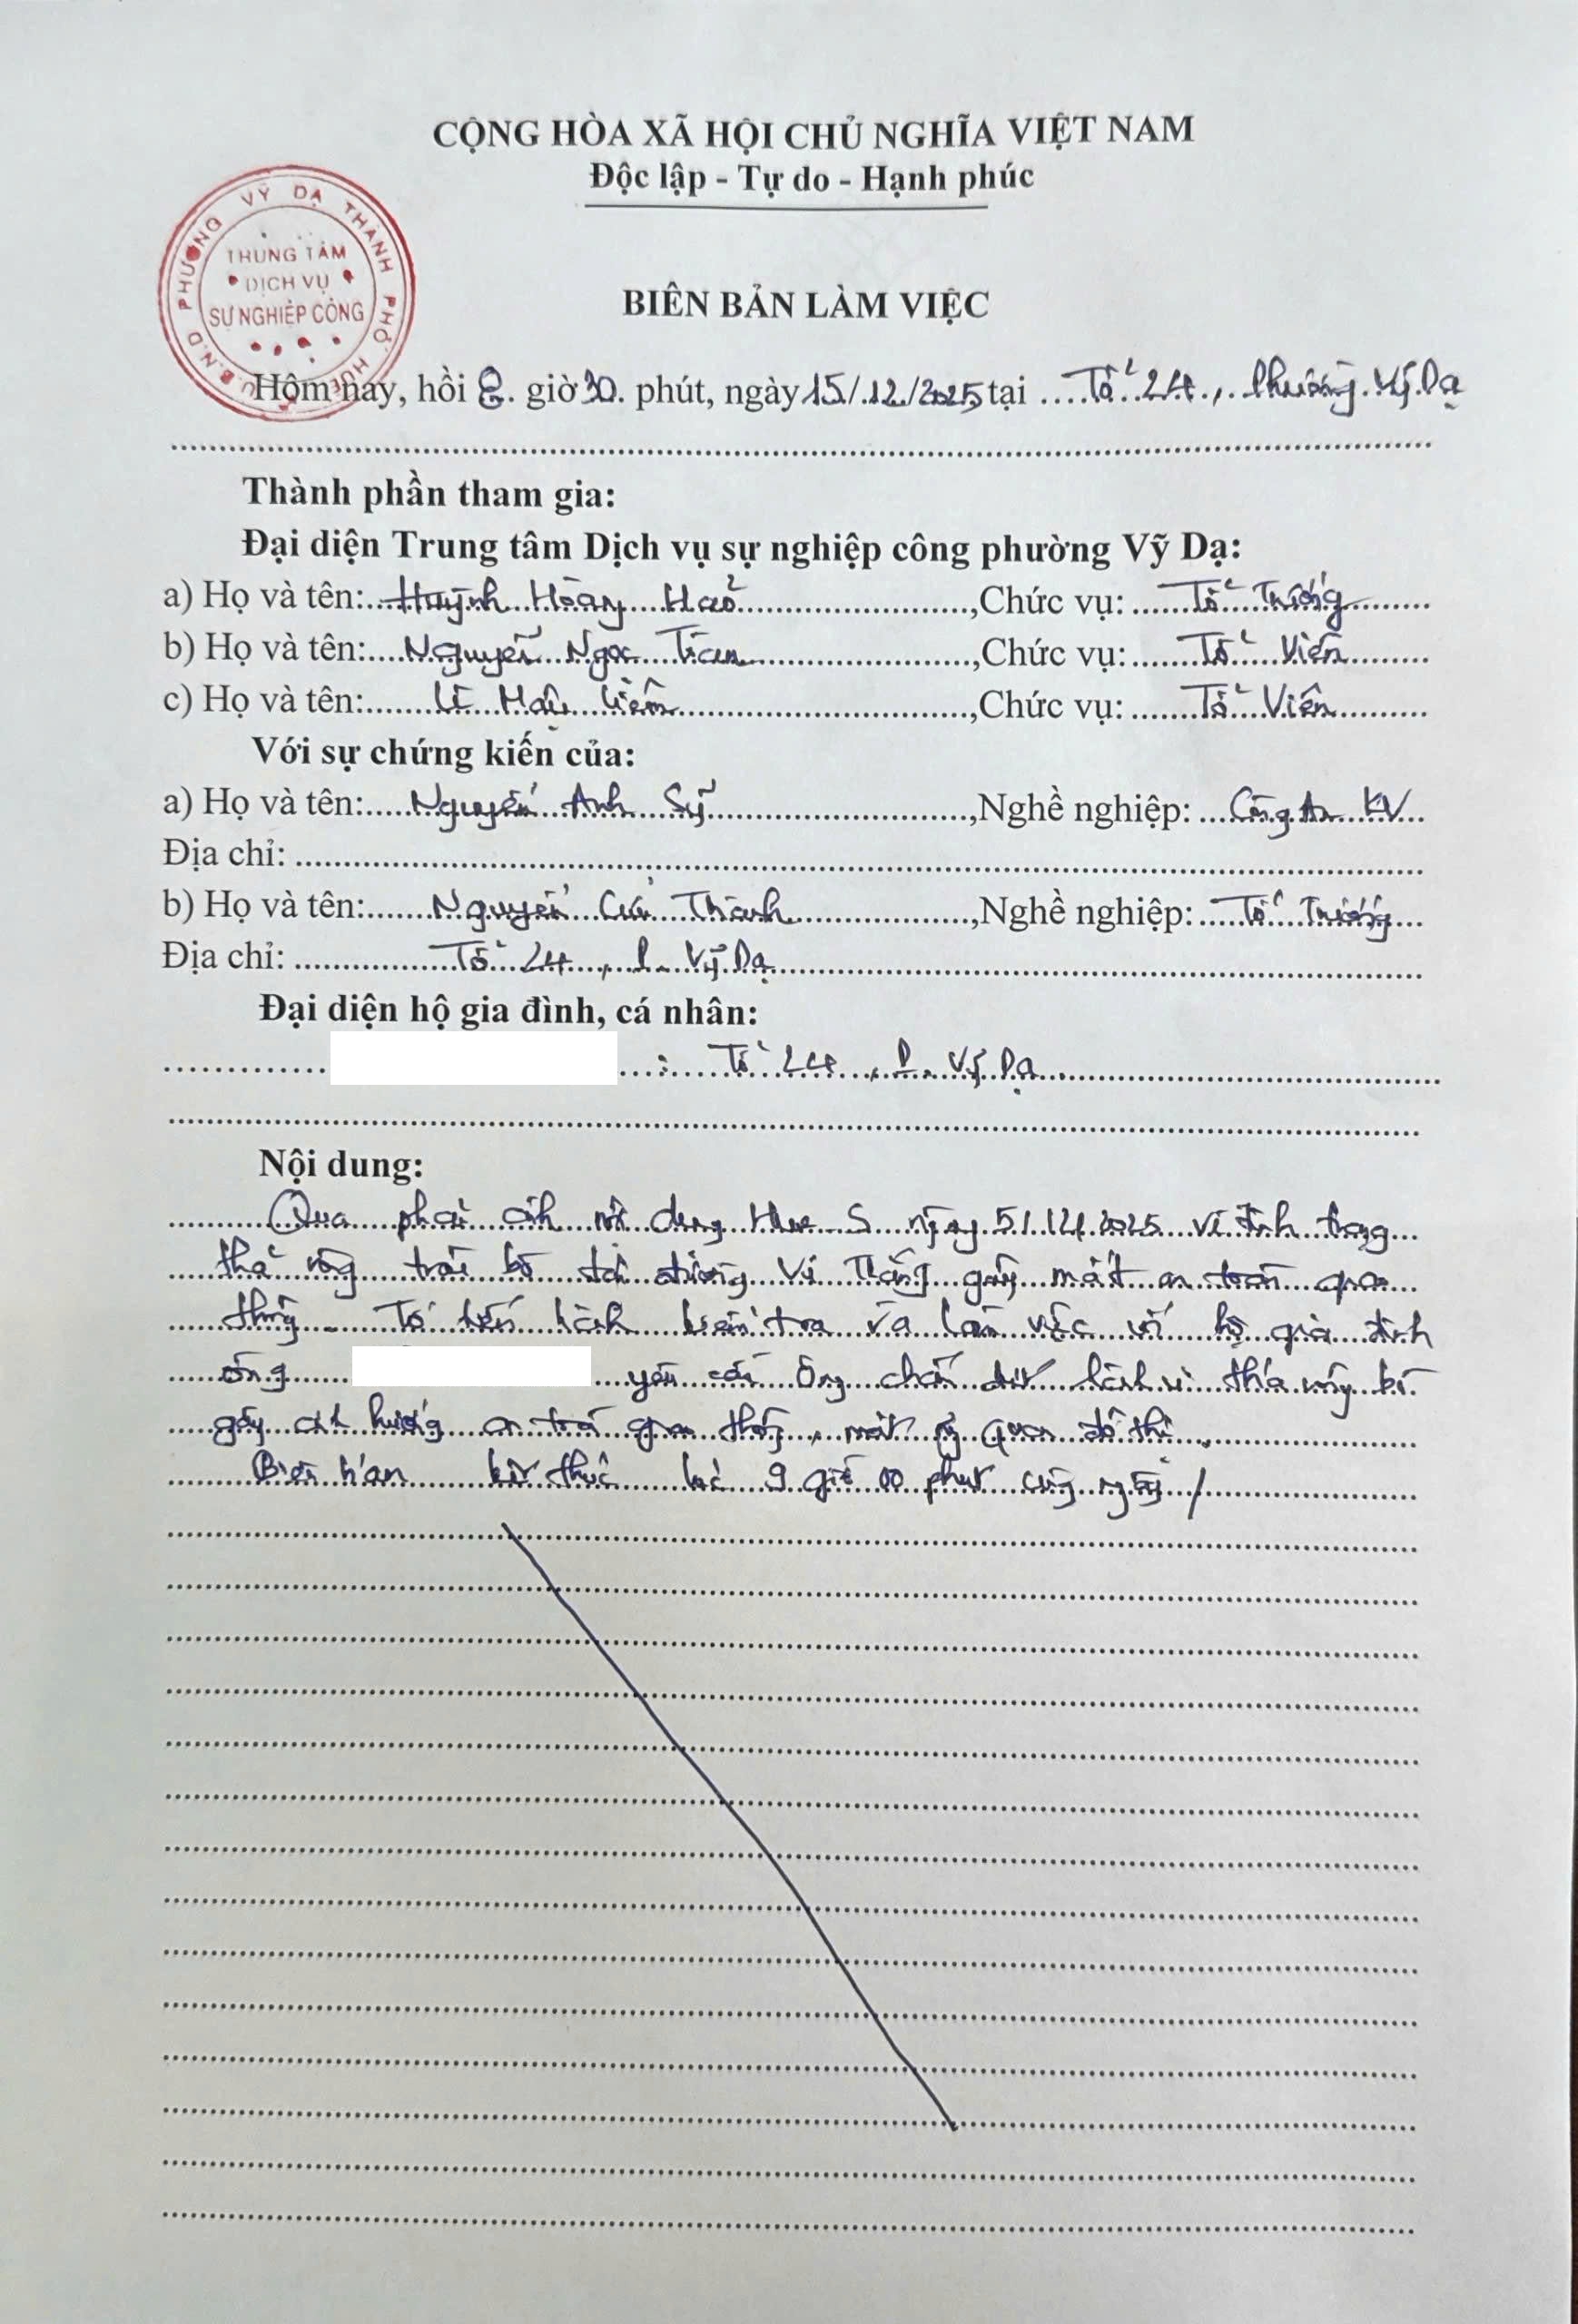 CỘNG HÒA XÃ HỘI CHỦ NGHĨA VIỆT NAM
Độc lập - Tự do - Hạnh phúc
U.B.N.D PHƯỜNG VỸ DẠ THÀNH PHỐ HUẾ
TRUNG TÂM
DỊCH VỤ
SỰ NGHIỆP CÔNG
BIÊN BẢN LÀM VIỆC
Hôm nay, hồi 8 giờ 30 phút, ngày 15/12/2025 tại Tổ 24, Phường Vỹ Dạ
Thành phần tham gia:
Đại diện Trung tâm Dịch vụ sự nghiệp công phường Vỹ Dạ:
a) Họ và tên: Huỳnh Hoàng Hảo, Chức vụ: Tổ Trưởng
b) Họ và tên: Nguyễn Ngọc, Chức vụ: Tổ Viên
c) Họ và tên: Lê Hậu, Chức vụ: Tổ Viên
Với sự chứng kiến của:
a) Họ và tên: Nguyễn Anh Sỹ, Nghề nghiệp: Công An KV
Địa chỉ:
b) Họ và tên: Nguyễn Cửu Thành, Nghề nghiệp: Tổ Trưởng
Địa chỉ: Tổ 24, P. Vỹ Dạ
Đại diện hộ gia đình, cá nhân:
: Tổ 24, P. Vỹ Dạ
Nội dung:
Qua phản ánh nội dung Hue S ngày 2025 về tình trạng
thả rông trâu bò tại đường gây mất an toàn giao
thông. Tổ tiến hành kiểm tra và làm việc với hộ gia đình
ông yêu cầu ông chấm dứt hành vi thả rông bò
gây ảnh hưởng an toàn giao thông, mất mỹ quan đô thị.
Biên bản kết thúc lúc 9 giờ 00 phút cùng ngày /